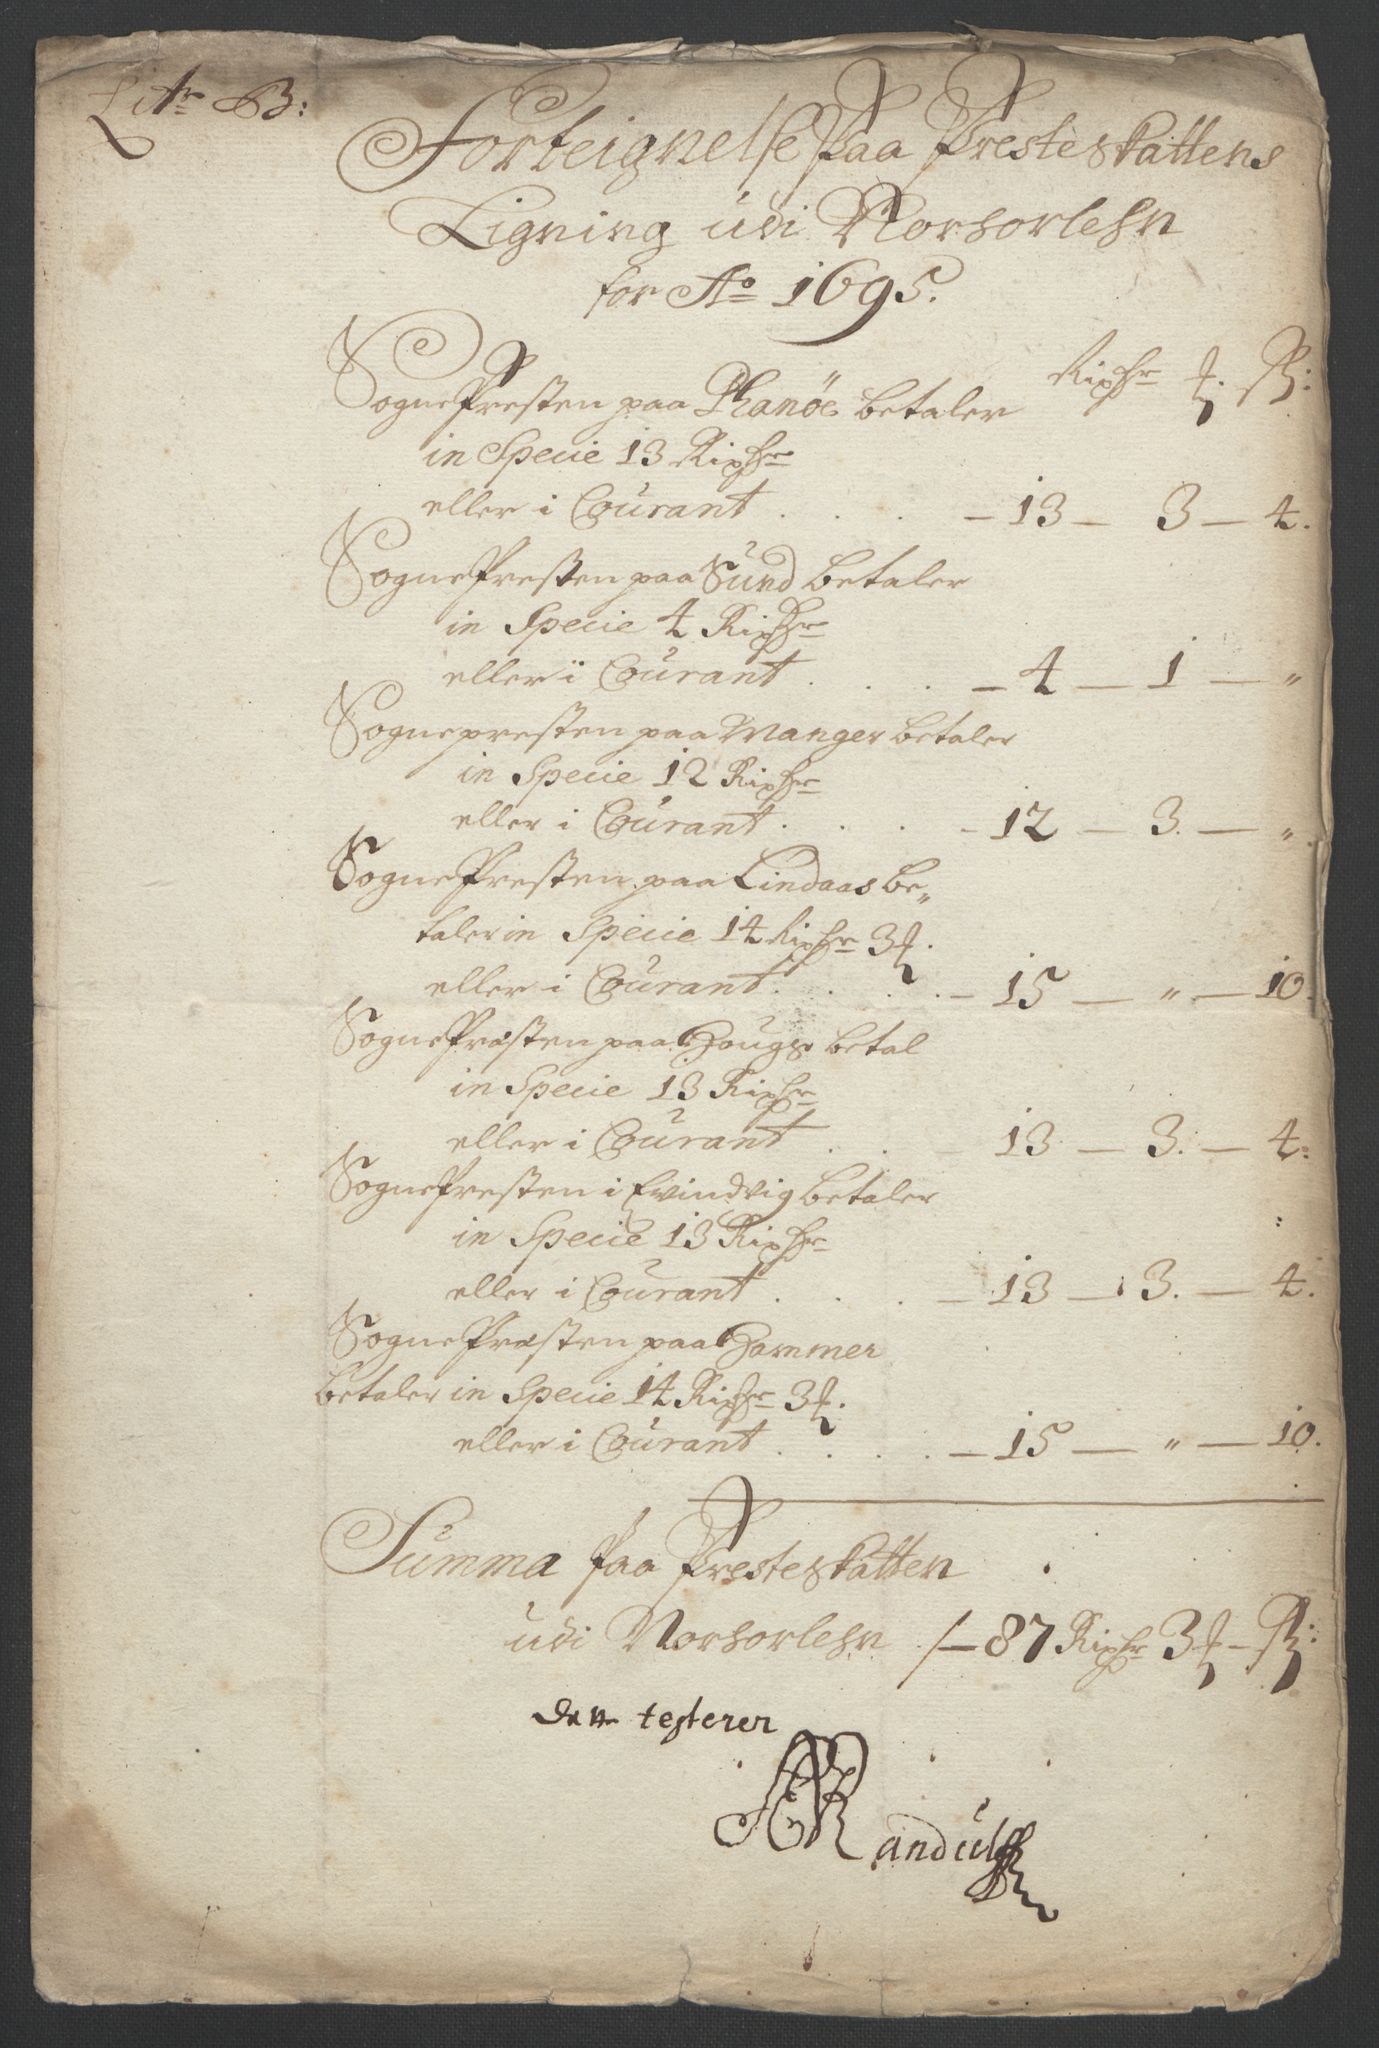 Litr B:
Forteignelse Paa Presteskattens
Ligning udi Norhorlehn
for Ao 1695.
Ripdr ß:
Sogne Presten paa Phanöe betaler
in Specie 13 Ripdr
eller i Courant . . . – 13 – 3 – 4.
Sogne Presten paa Sund betaler
in Specie 4 Ripdr
eller i Courant . . . – 4 – 1 – "
Sognepresten paa Manger betaler
in Specie 12 Ripdr
eller i Courant . . . – 12 – 3. – "
Sogne Presten paa Lindaas be„
taler in Specie 14 Ripdr 3
eller i Courant . . . – 15 – " – 10.
Sogne Præsten paa Hougs betal
in Specie 13 Ripdr
eller i Courant . . – 13 – 3. – 4.
Sogne Presten i Evindvig betaler
in Specie 13 Ripdr
eller i Courant . . . – 13 – 3. – 4.
Sogne Præsten paa Hammer
betaler in Specie 14 Ripdr 3
eller i Courant . . . – 15 – " – 10.
Summa Paa Presteskatten
udi Norhorlehn /– 87 Ripdr 3 – ß:
testerer
Randulff